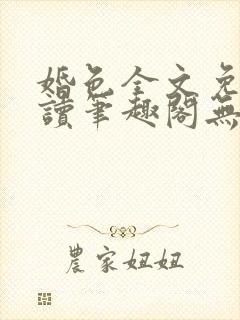 婚色全文免
讀筆趣閣無
農家妞妞